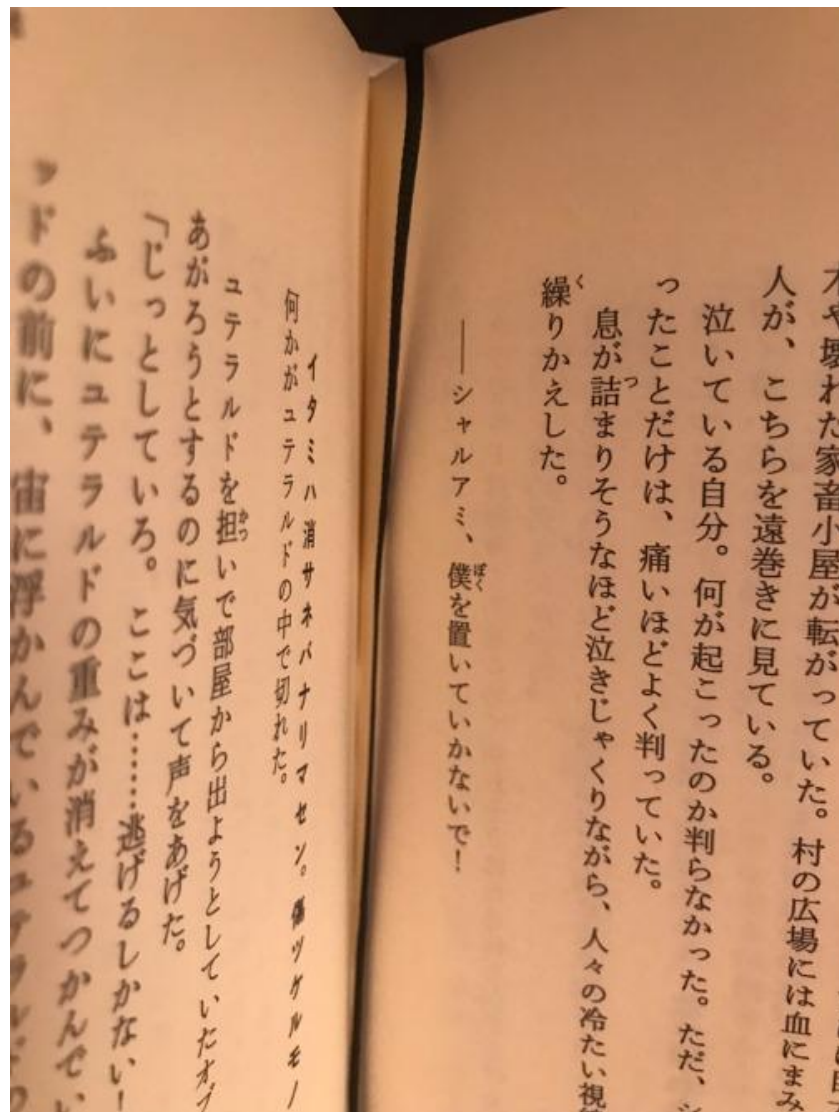 や壊れた家畜小屋が転がっていた。村の広場には血にまみ
人が、こちらを遠巻きに見ている。
泣いている自分。何が起こったのか判らなかった。ただ、シ
ったことだけは、痛いほどよく判っていた。
息が詰まりそうなほど泣きじゃくりながら、人々の冷たい視
繰りかえした。
――シャルアミ、僕を置いていかないで！
イタミハ消サネバナリマセン。傷ツケルモノ
何かがユテラルドの中で切れた。
ユテラルドを担いで部屋から出ようとしていたオブ
あがろうとするのに気づいて声をあげた。
「じっとしていろ。ここは……逃げるしかない！
ふいにユテラルドの重みが消えてつかんでい
ッドの前に、宙に浮かんでいるユテラルドの